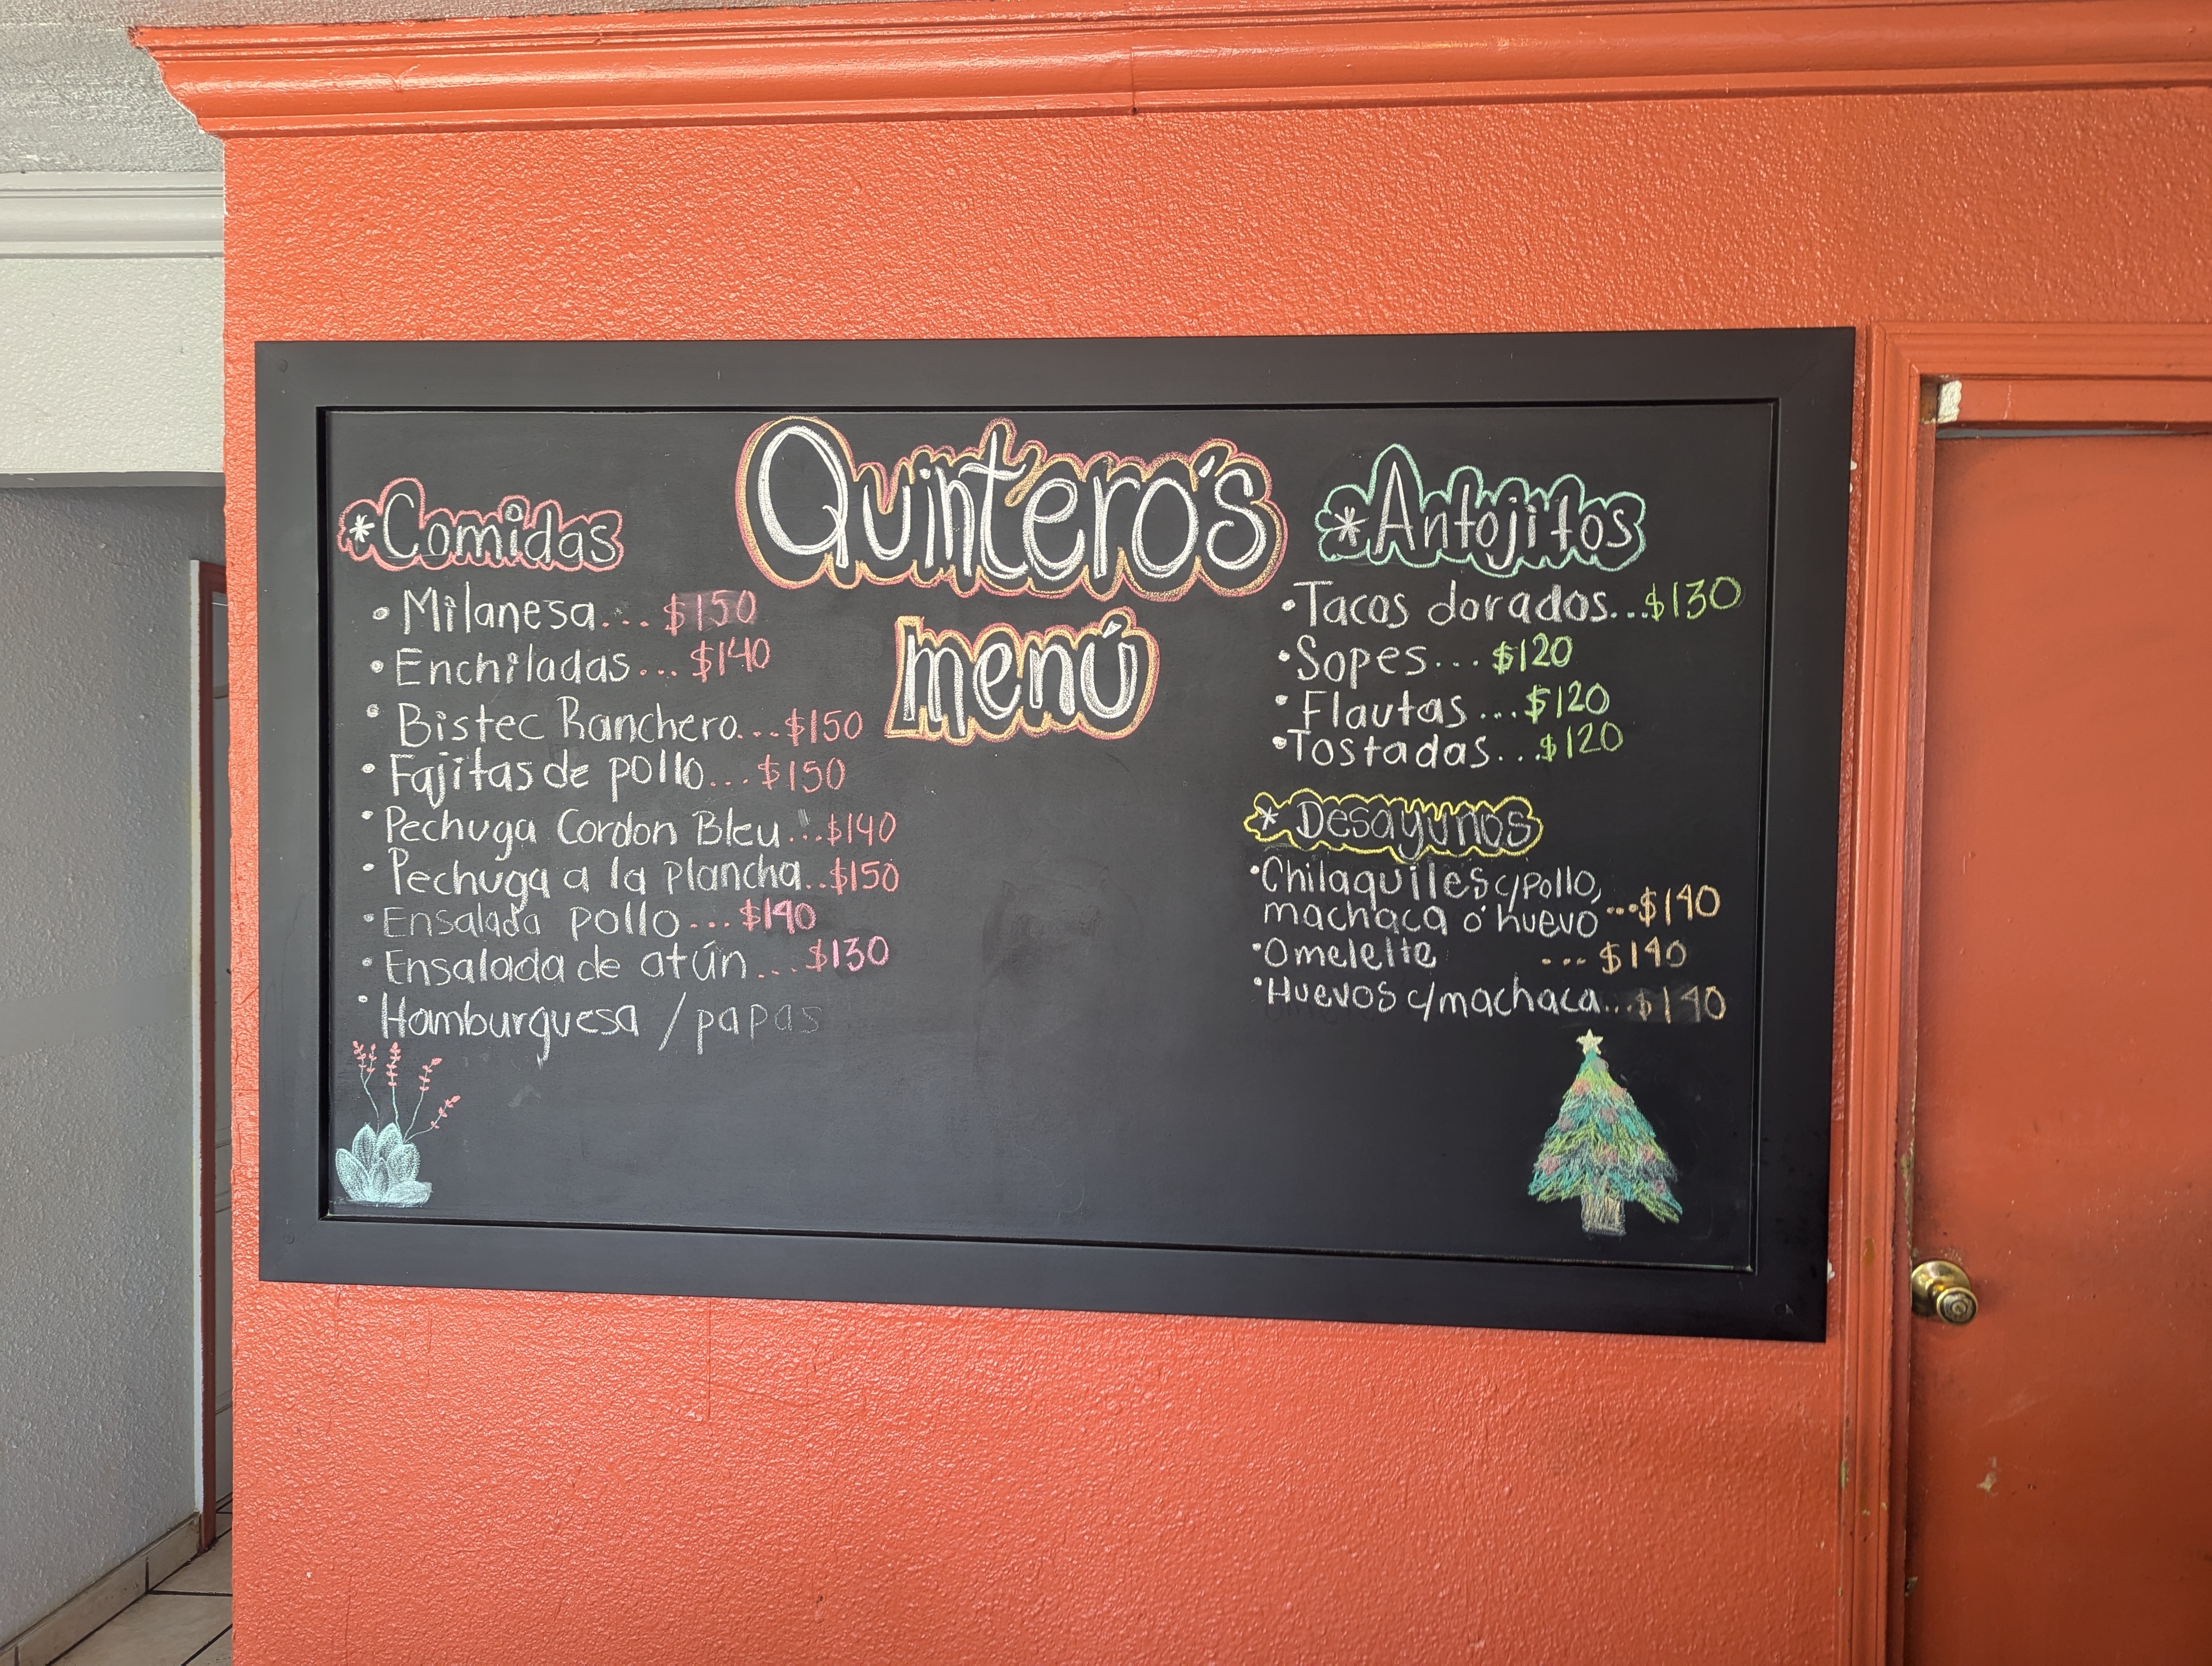 Quintero's
menú
*Comidas
• Milanesa... $150
• Enchiladas... $140
• Bistec Ranchero...$150
• Fajitas de pollo...$150
• Pechuga Cordon Bleu...$140
• Pechuga a la plancha..$150
• Ensalada pollo...$140
• Ensalada de atún...$130
• Hamburguesa / papas
*Antojitos
• Tacos dorados...$130
• Sopes...$120
• Flautas...$120
• Tostadas...$120
* Desayunos
• Chilaquiles c/pollo,
machaca ó huevo ...$140
• Omelette ...$140
• Huevos c/machaca...$140